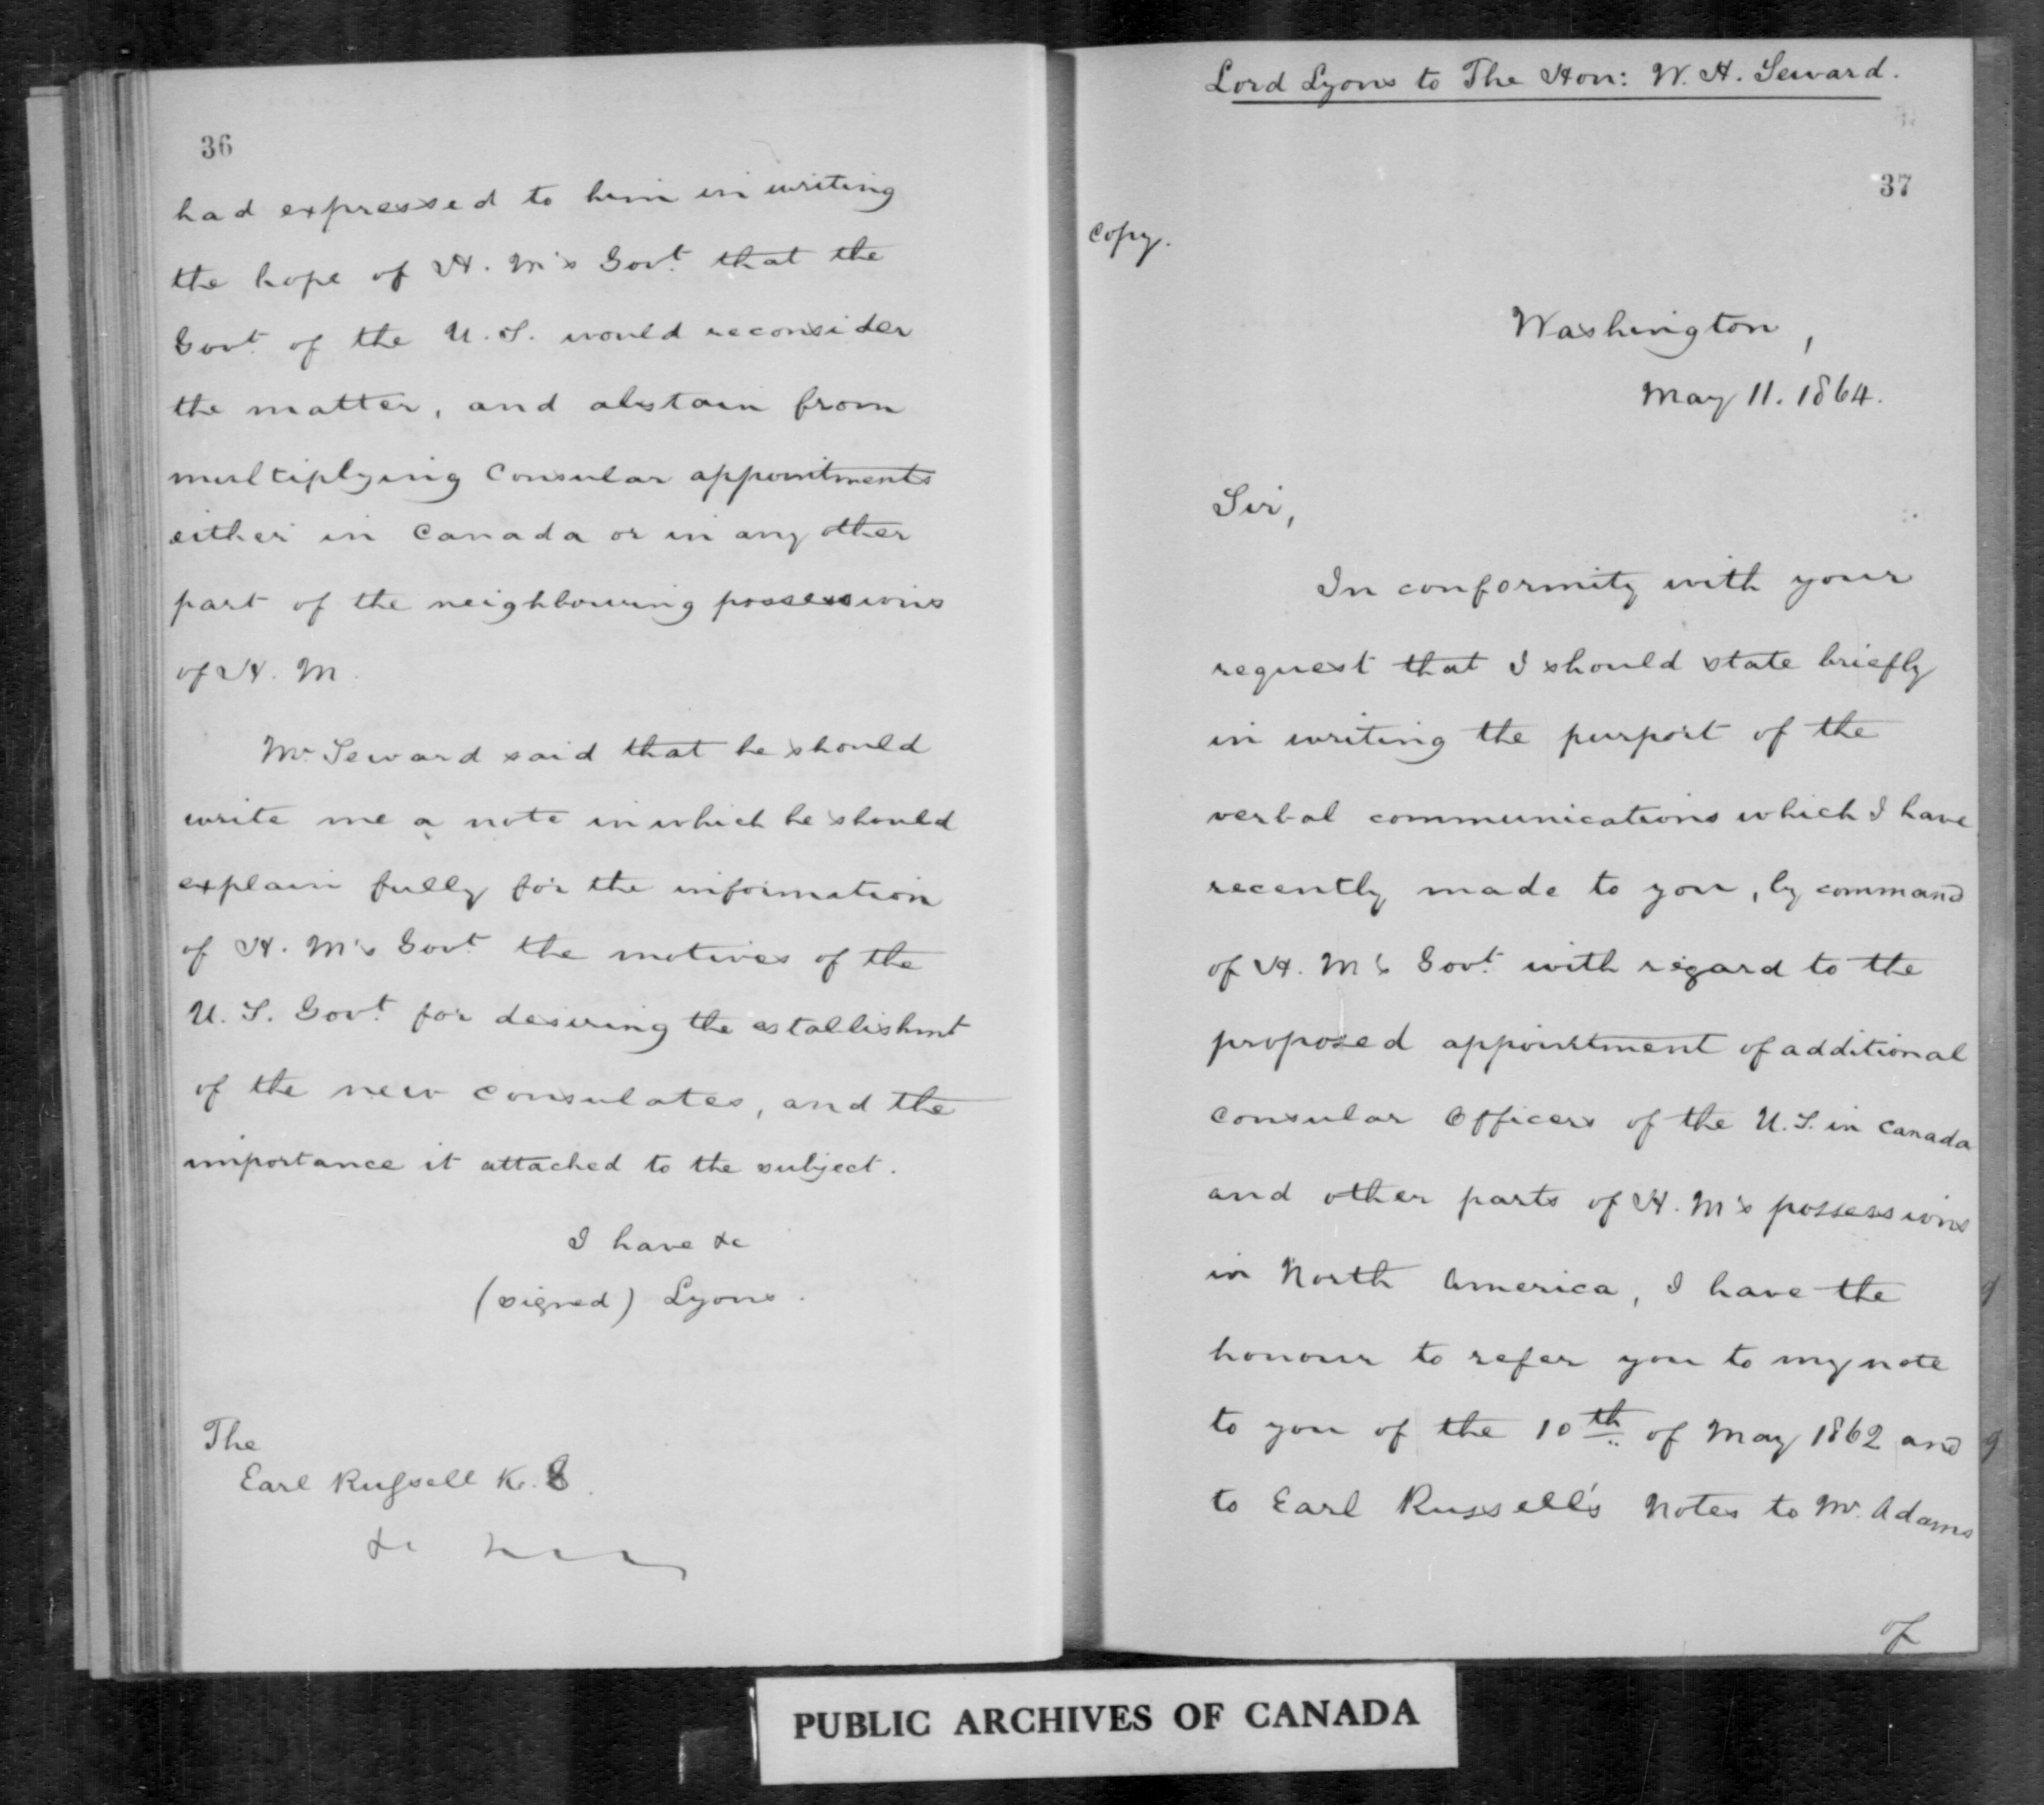 36
had expressed to him in writing
the hope of H. M's Govt. that the
Govt. of the U.S. would reconsider
the matter, and abstain from
multiplying Consular appointments
either in Canada or in any other
part of the neighbouring possessions
of H. M.
Mr Seward said that he should
write me a note in which he should
explain fully for the information
of H. M's Govt. the motives of the
U. S. Govt. for desiring the establishmt
of the new consulates, and the
importance it attached to the subject.
I have &c
(signed) Lyons.
The
Earl Russell K. G.
&c
Lord Lyons to The Hon: W. H. Seward.
37
Copy.
Washington,
May 11. 1864.
Sir,
In conformity with your
request that I should state briefly
in writing the purport of the
verbal communications which I have
recently made to you, by command
of H. M's Govt. with regard to the
proposed appointment of additional
Consular Officers of the U.S. in Canada
and other parts of H. M's possessions
in North America, I have the
honour to refer you to my note
to you of the 10th of May 1862 and
to Earl Russell's Notes to Mr. Adams
of
PUBLIC ARCHIVES OF CANADA